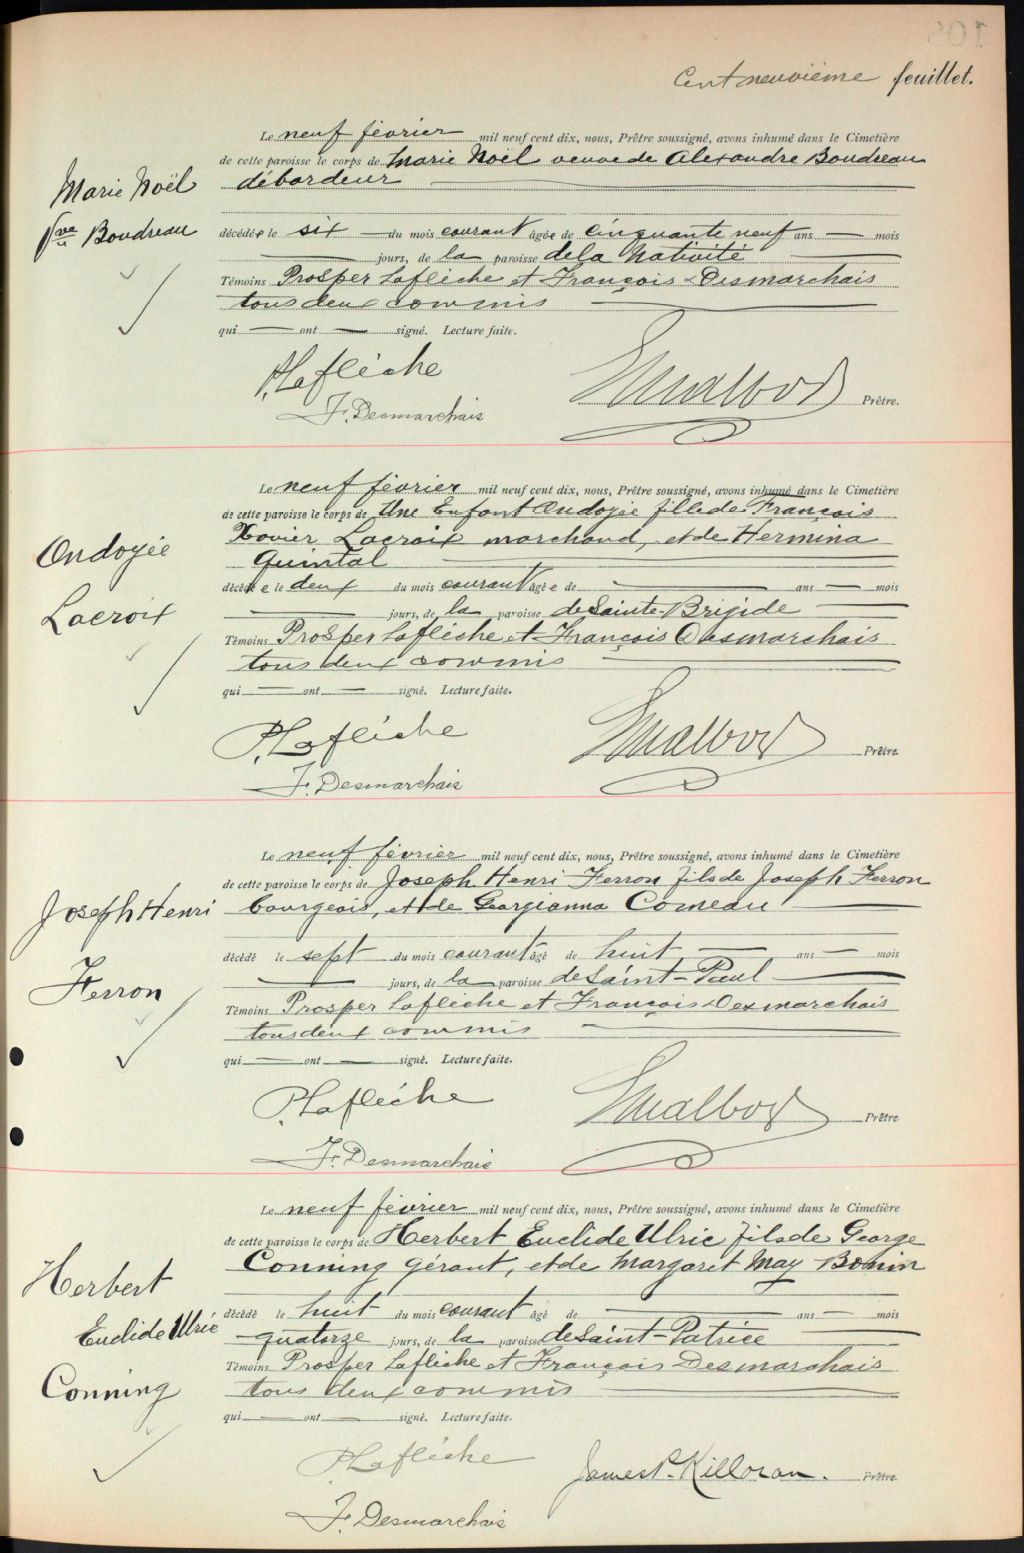 Cent neuvième feuillet.
Le neuf février mil neuf cent dix, nous, Prêtre soussigné, avons inhumé dans le Cimetière
de cette paroisse le corps de Marie Noël veuve de Alexandre Boudreau
débardeur
Marie Noël
Vve Boudreau
décédée le six du mois courant âgée de cinquante neuf ans mois
jours, de la paroisse de la Nativité
Témoins Prosper Laflèche et François Desmarchais
tous deux commis
qui ont signé. Lecture faite.
P. Laflèche
F. Desmarchais
Prêtre.
Le neuf février mil neuf cent dix, nous, Prêtre soussigné, avons inhumé dans le Cimetière
de cette paroisse le corps de Une Enfant Ondoyée fille de François
Xavier Lacroix marchand, et de Hermina
Quintal
Ondoyée
Lacroix
décédée le deux du mois courant âgée de ans mois
jours, de la paroisse de Sainte-Brigide
Témoins Prosper Laflèche et François Desmarchais
tous deux commis
qui ont signé. Lecture faite.
P. Laflèche
F. Desmarchais
Prêtre.
Le neuf février mil neuf cent dix, nous, Prêtre soussigné, avons inhumé dans le Cimetière
de cette paroisse le corps de Joseph Henri Ferron fils de Joseph Ferron
bourgeois, et de Georgianna Comeau
Joseph Henri
Ferron
décédé le sept du mois courant âgé de huit ans mois
jours, de la paroisse de Saint-Paul
Témoins Prosper Laflèche et François Desmarchais
tous deux commis
qui ont signé. Lecture faite.
P. Laflèche
F. Desmarchais
Prêtre
Le neuf février mil neuf cent dix, nous, Prêtre soussigné, avons inhumé dans le Cimetière
de cette paroisse le corps de Herbert Euclide Ulric fils de George
Conning gérant, et de Margaret May Bonin
Herbert
Euclide Ulric
Conning
décédé le huit du mois courant âgé de ans mois
quatorze jours, de la paroisse de Saint-Patrice
Témoins Prosper Laflèche et François Desmarchais
tous deux commis
qui ont signé. Lecture faite.
P. Laflèche
James P. Killoran.
Prêtre
F. Desmarchais